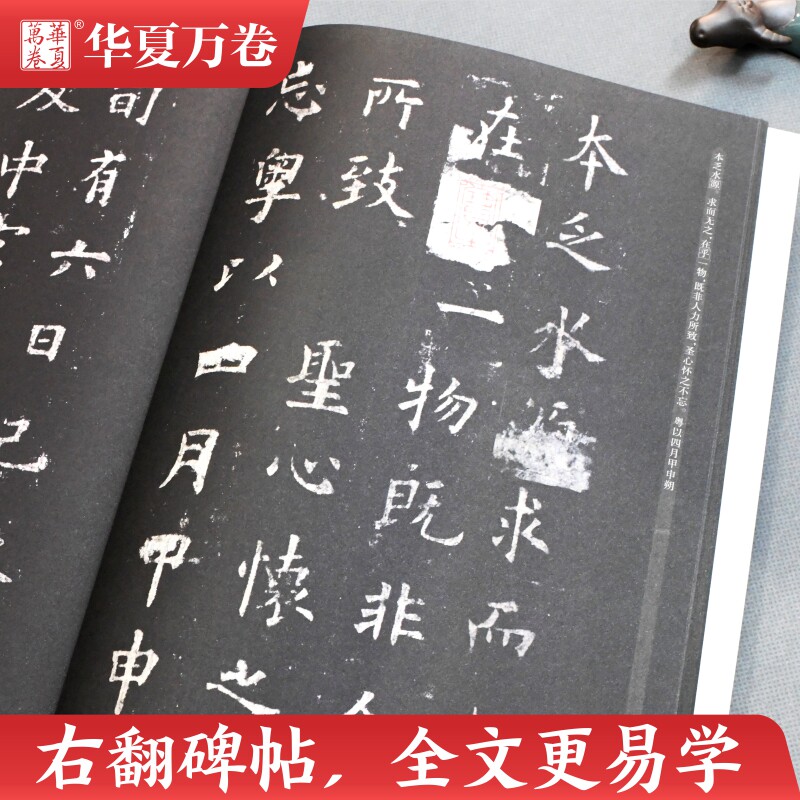 華夏萬卷®
华夏万卷
本乏水源，求而无之，在乎一物，既非人力所致，圣心怀之不忘。粤以四月甲申朔
本乏水求而
在一物既非人
所致聖心懷之
忘粵以四月甲申
旬有六日己
及中宮
右翻碑帖，全文更易学